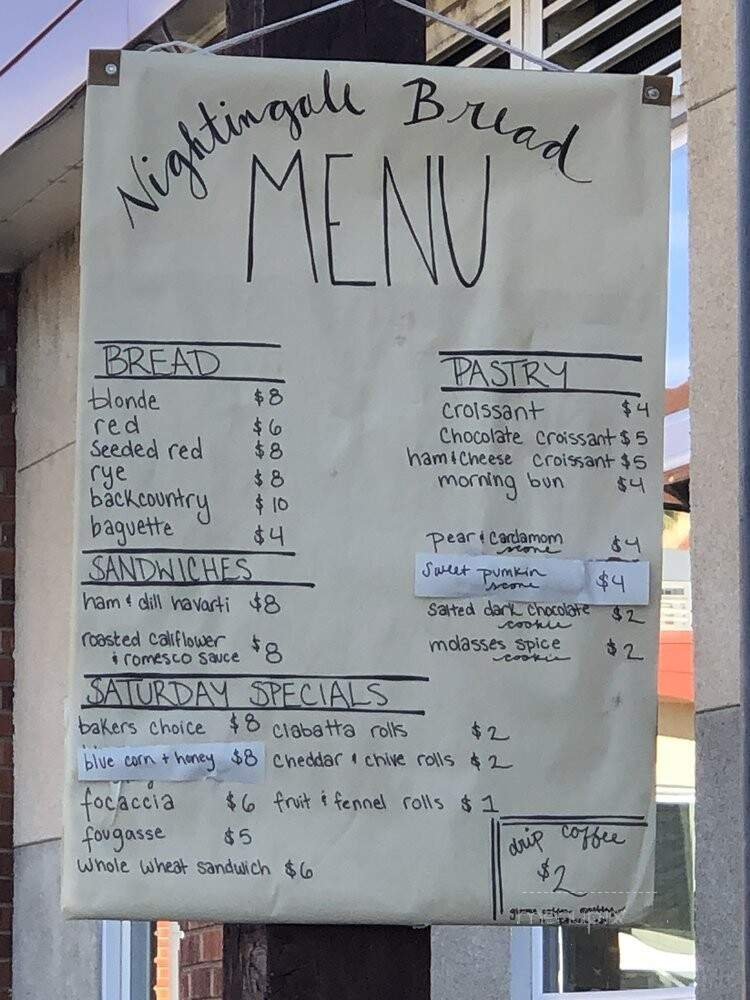 Nightingale Bread
MENU
BREAD
blonde $8
red $6
Seeded red $8
rye $8
backcountry $10
baguette $4
SANDWICHES
ham & dill havarti $8
roasted califlower
& romesco sauce $8
SATURDAY SPECIALS
bakers choice $8
blue corn + honey $8
focaccia $6
fougasse $5
whole wheat sandwich $6
ciabatta rolls $2
cheddar & chive rolls $2
fruit & fennel rolls $1
PASTRY
croissant $4
Chocolate croissant $5
ham & cheese croissant $5
morning bun $4
pear & cardamom
scone $4
Sweet pumkin
scone $4
Salted dark chocolate
cookie $2
molasses spice
cookie $2
drip coffee
$2
menupix